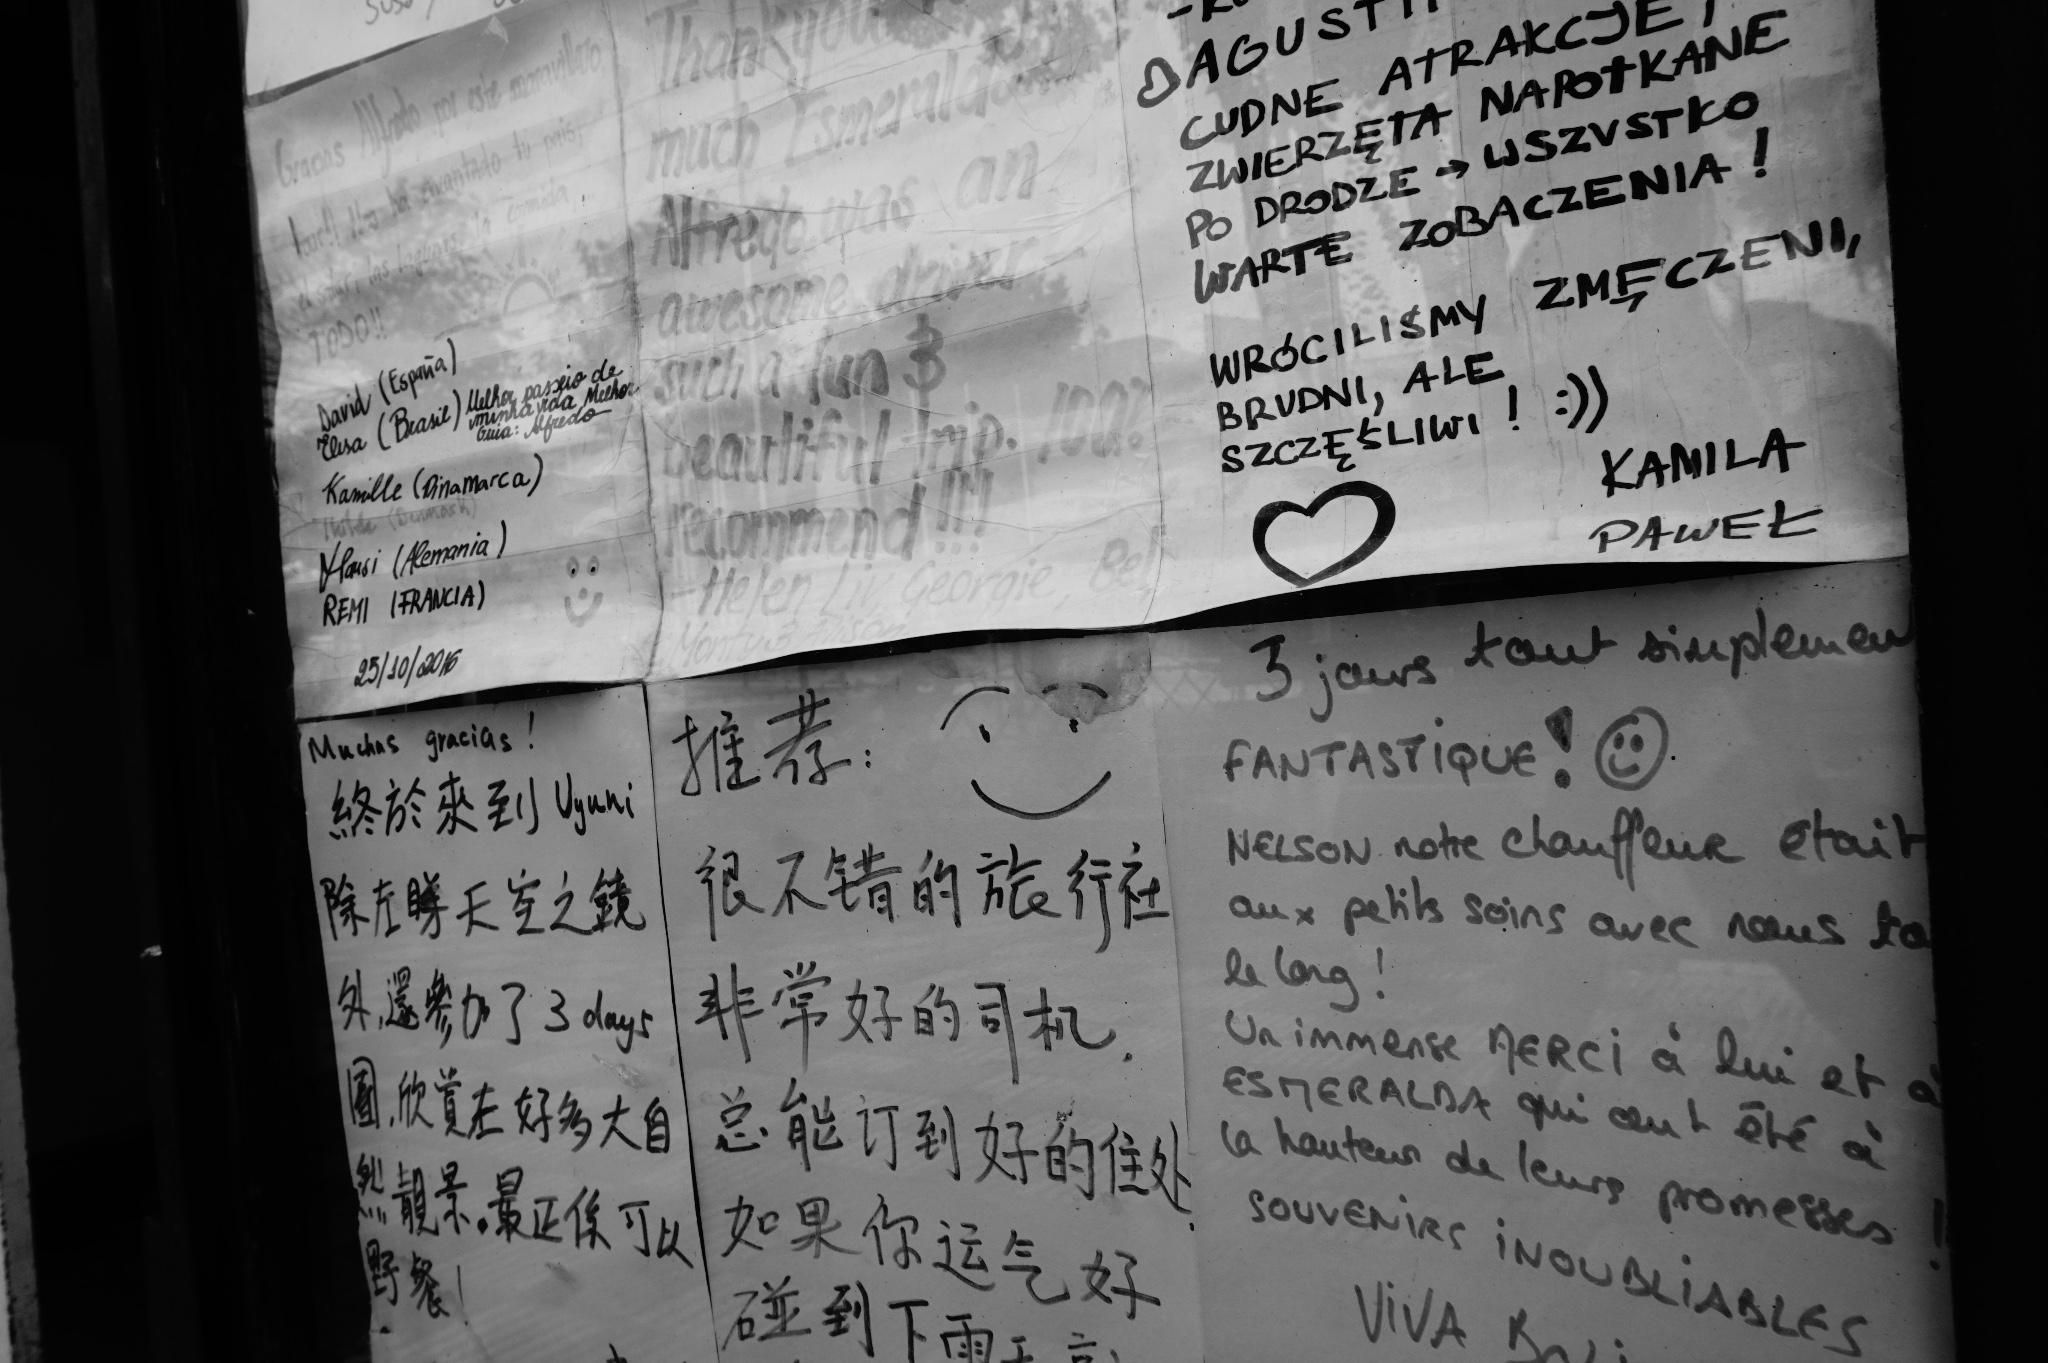 Gracias Alfredo por este maravilloso
tour!! Nos ha encantado tu país,
el salar, las lagunas, la comida...
TODO!!
David (España)
Elisa (Brasil) Melhor passeio de
minha vida Melhor
Guia: Alfredo
Kamille (Dinamarca)
(Denmark)
(Alemania)
REMI (FRANCIA)
25/10/2016
Thankyou
much Esmeralda
Alfredo was an
awesome driver
such a fun &
beautiful trip. 100%
recommend!!!!
-Helen Liv Georgie, Bel
Monty & Alison
AGUSTI
CUDNE ATRAKCJE,
ZWIERZĘTA NAPOTKANE
PO DRODZE → WSZYSTKO
WARTE ZOBACZENIA!
WRÓCILIŚMY ZMĘCZENI,
BRUDNI, ALE
SZCZĘŚLIWI! :))
KAMILA
PAWEŁ
Muchas gracias!
終於來到 Uyuni
除左睇天空之鏡
外,還參加了 3 days
團,欣賞左好多大自
然靚景。最正係可以
野餐!
推荐:
很不错的旅行社
非常好的司机.
总能订到好的住处.
如果你运气好
碰到下雨天
3 jours tout simplemen
FANTASTIQUE!
NELSON notre chauffeur était
aux petits soins avec nous to
le long!
Un immense MERCI à lui et à
ESMERALDA qui ont été à
la hauteur de leurs promesses!
SOUVENIRS INOUBLIABLES
VIVA